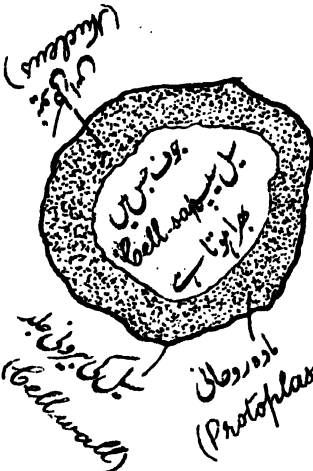 نیوکلی اس
(Nucleus)
جوف جس میں
سیل سیپ
Cell-sap
بھرا ہوتا ہے
سیل کی بیرونی جلد
(Cell-wall)
مادہ روحانی
(Protoplas